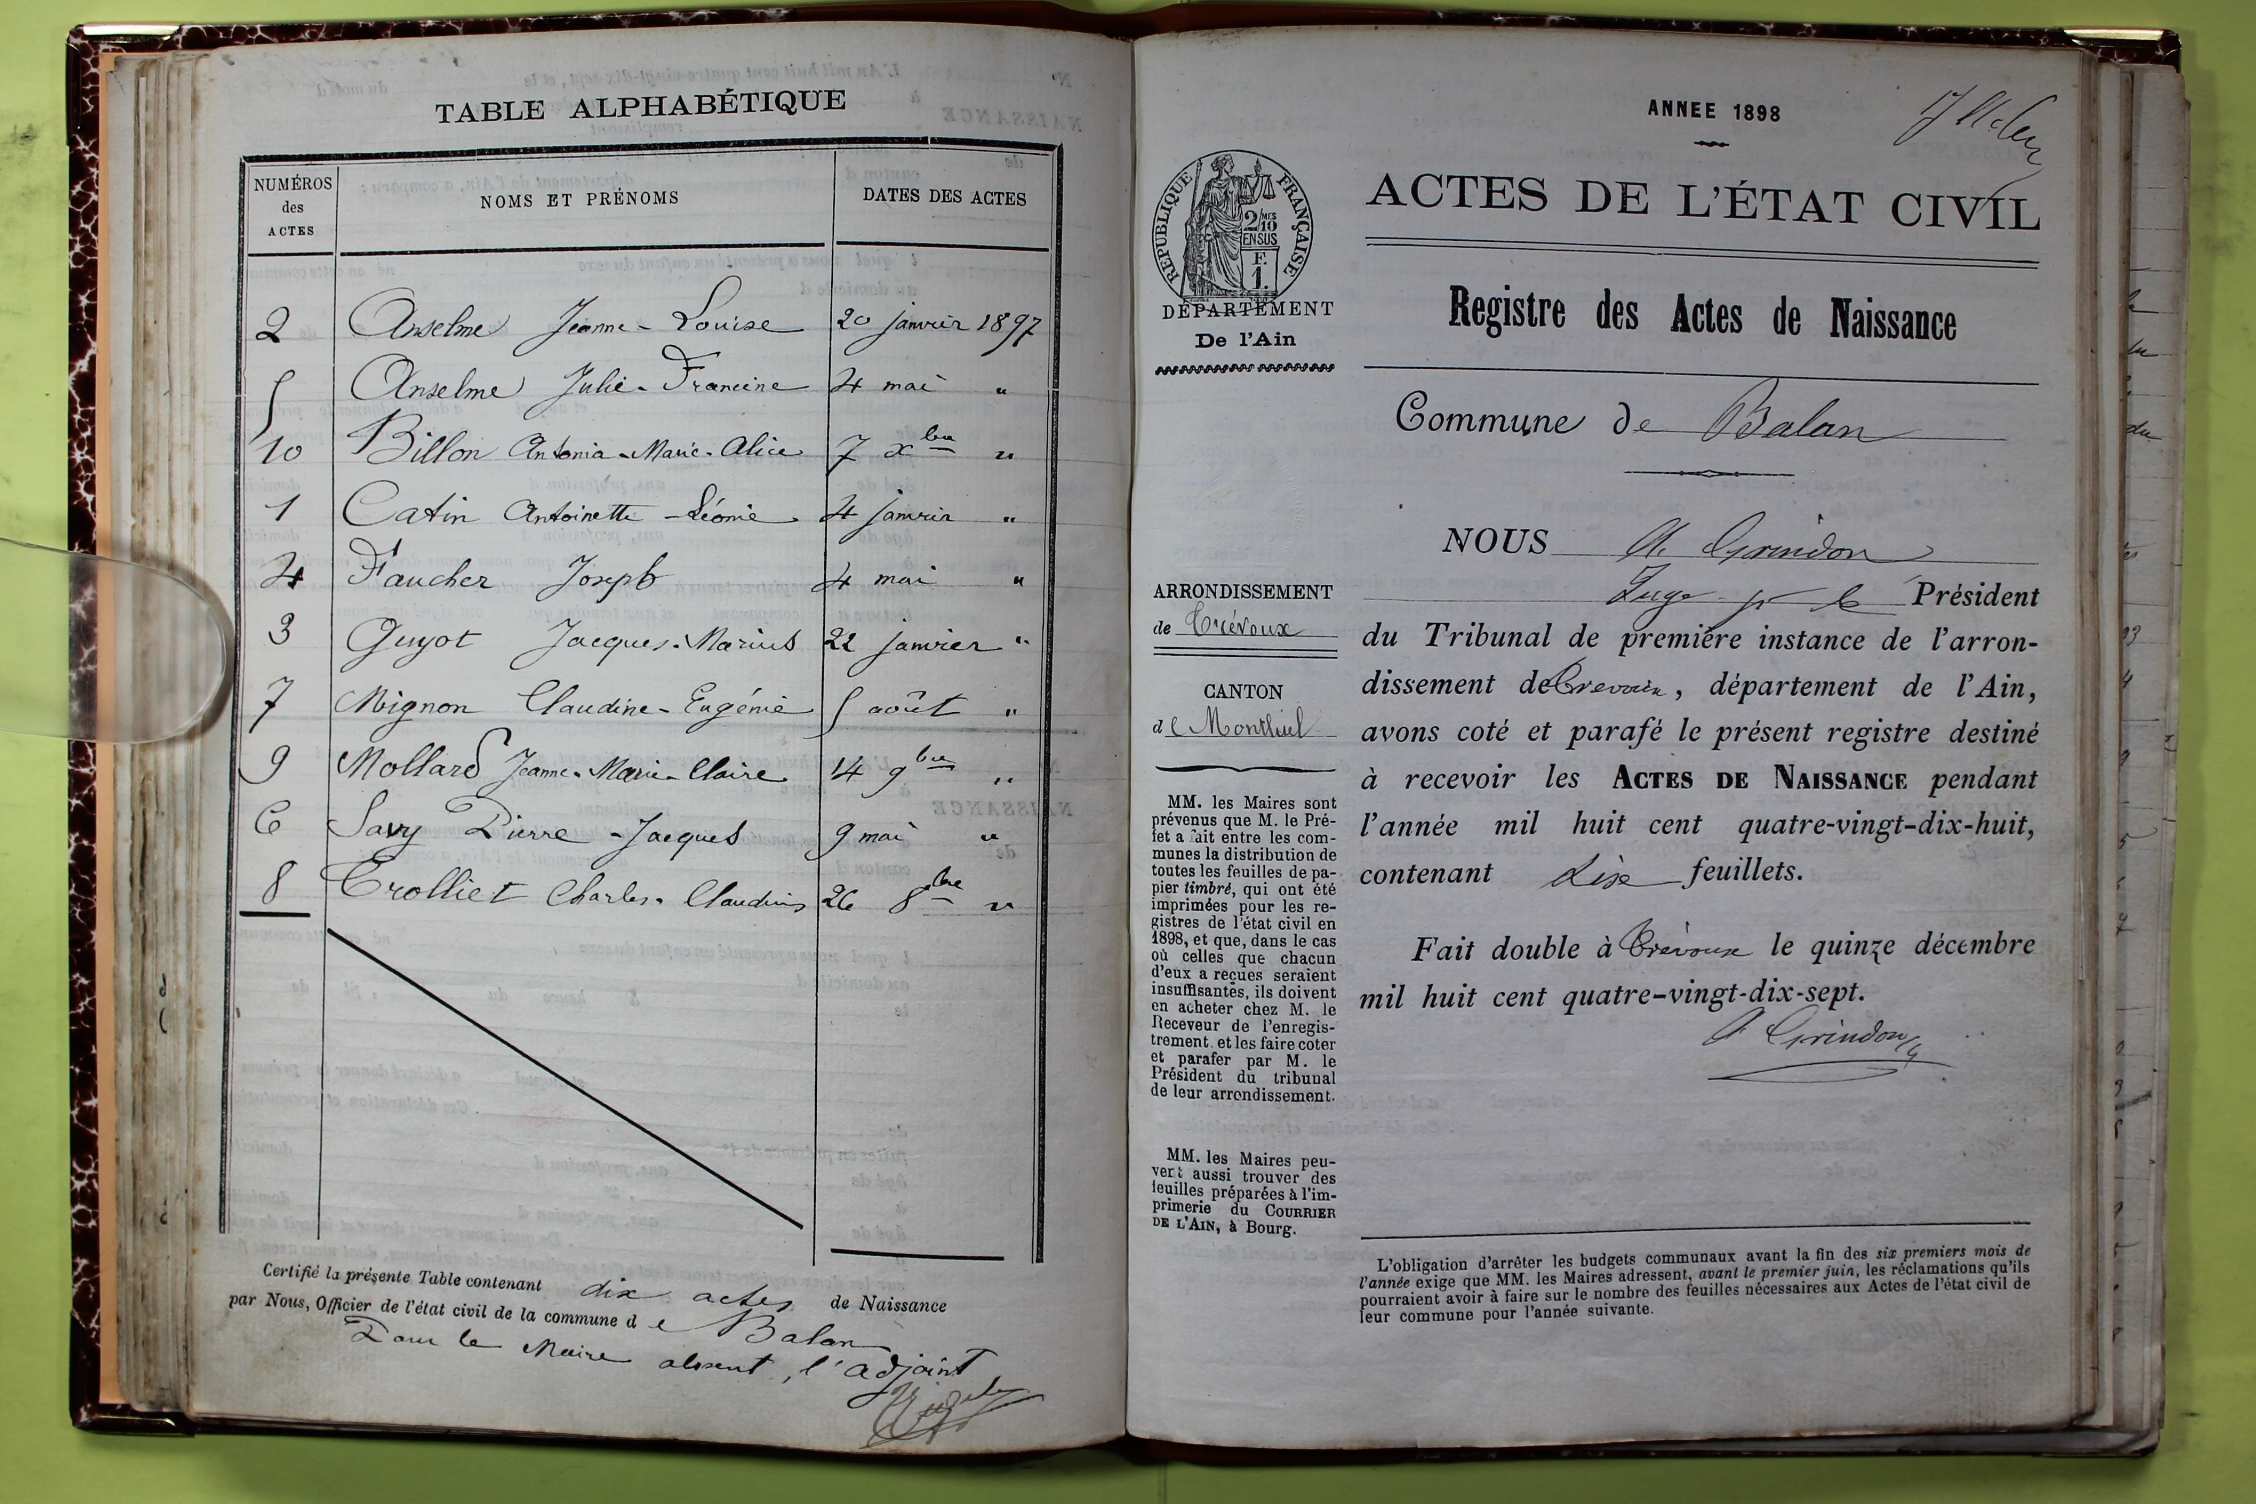 TABLE ALPHABÉTIQUE
NUMÉROS des ACTES NOMS ET PRÉNOMS DATES DES ACTES
2 Anselme Jeanne-Louise 20 janvier 1897
5 Anselme Julie-Francine 4 mai "
10 Billon Antonia-Marie-Alice 7 xbre "
1 Catin Antoinette-Léonie 4 janvier "
4 Faucher Joseph 4 mai "
3 Guyot Jacques-Marius 22 janvier "
7 Mignon Claudine-Eugénie 5 août "
9 Mollard Jeanne-Marie-Claire 14 9bre "
6 Savy Pierre-Jacques 9 mai "
8 Trolliet Charles-Claudius 26 8bre "
Certifié la présente Table contenant dix actes de Naissance
par Nous, Officier de l'état civil de la commune de Balan
Pour le Maire absent, l'adjoint
ANNEE 1898
ACTES DE L'ÉTAT CIVIL
RÉPUBLIQUE FRANÇAISE
2/10 MES
EN SUS
F.
1.
DÉPARTEMENT
De l'Ain
Registre des Actes de Naissance
Commune de Balan
NOUS A. Grindon
Juge pr le Président
ARRONDISSEMENT
de Trévoux
CANTON
de Montluel
du Tribunal de première instance de l'arron-
dissement de Trévoux, département de l'Ain,
avons coté et parafé le présent registre destiné
à recevoir les ACTES DE NAISSANCE pendant
l'année mil huit cent quatre-vingt-dix-huit,
contenant dix feuillets.
Fait double à Trévoux le quinze décembre
mil huit cent quatre-vingt-dix-sept.
A Grindon
MM. les Maires sont
prévenus que M. le Pré-
fet a fait entre les com-
munes la distribution de
toutes les feuilles de pa-
pier timbré, qui ont été
imprimées pour les re-
gistres de l'état civil en
1898, et que, dans le cas
où celles que chacun
d'eux a reçues seraient
insuffisantes, ils doivent
en acheter chez M. le
Receveur de l'enregis-
trement et les faire coter
et parafer par M. le
Président du tribunal
de leur arrondissement.
MM. les Maires peu-
vent aussi trouver des
feuilles préparées à l'im-
primerie du COURRIER
DE L'AIN, à Bourg.
L'obligation d'arrêter les budgets communaux avant la fin des six premiers mois de
l'année exige que MM. les Maires adressent, avant le premier juin, les réclamations qu'ils
pourraient avoir à faire sur le nombre des feuilles nécessaires aux Actes de l'état civil de
leur commune pour l'année suivante.